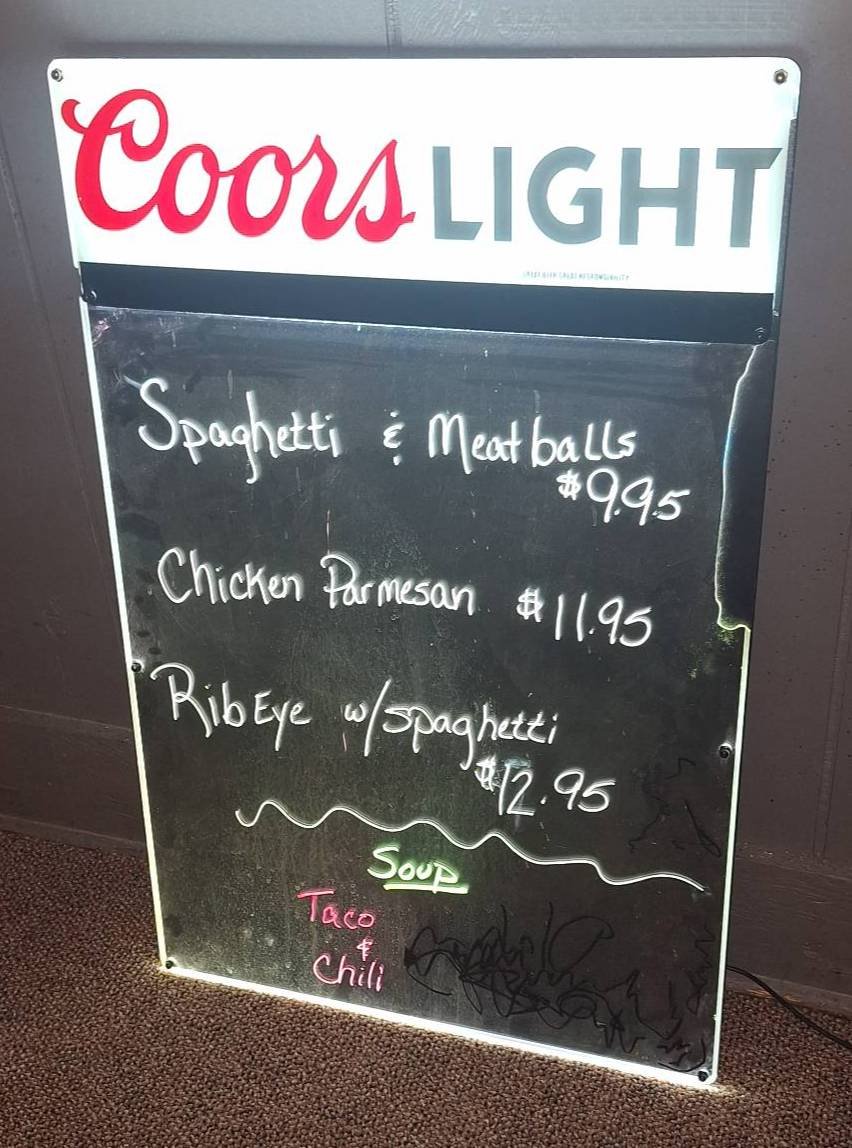 Coors LIGHT
GREAT BEER GREAT RESPONSIBILITY
Spaghetti & Meatballs
$9.95
Chicken Parmesan $11.95
Rib Eye w/spaghetti
$12.95
Soup
Taco
&
Chili